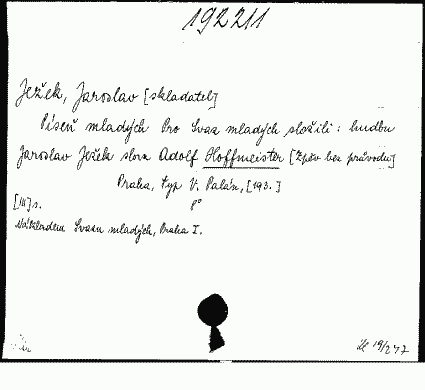 192211
Ježek, Jaroslav [skladatel]
Píseň mladých Pro Svaz mladých složili: hudbu
Jaroslav Ježek slova Adolf Hoffmeister [Zpěv bez průvodu]
Praha, typ V. Palán, [193.]
[III] s. 8°
Nákladem Svazu mladých, Praha I.